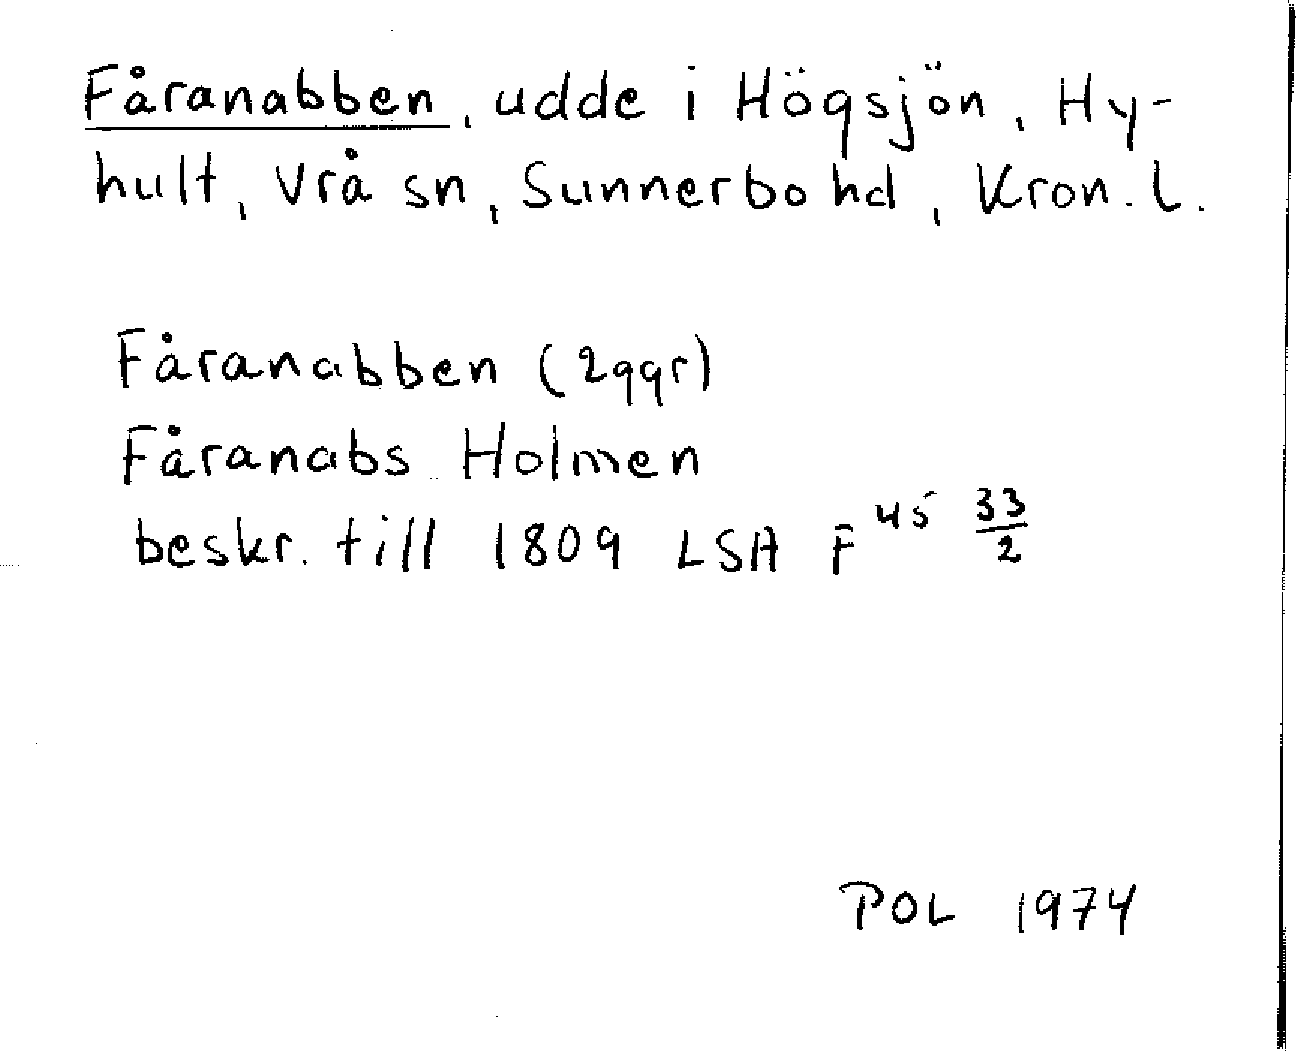 Fåranabben, udde i Högsjön, Hy-
hult, Vrå sn, Sunnerbo hd, Kron. l.
Fåranabben (2ggr)
Fåranabs Holmen
beskr. till 1809 LSA F 45 33/2
POL 1974